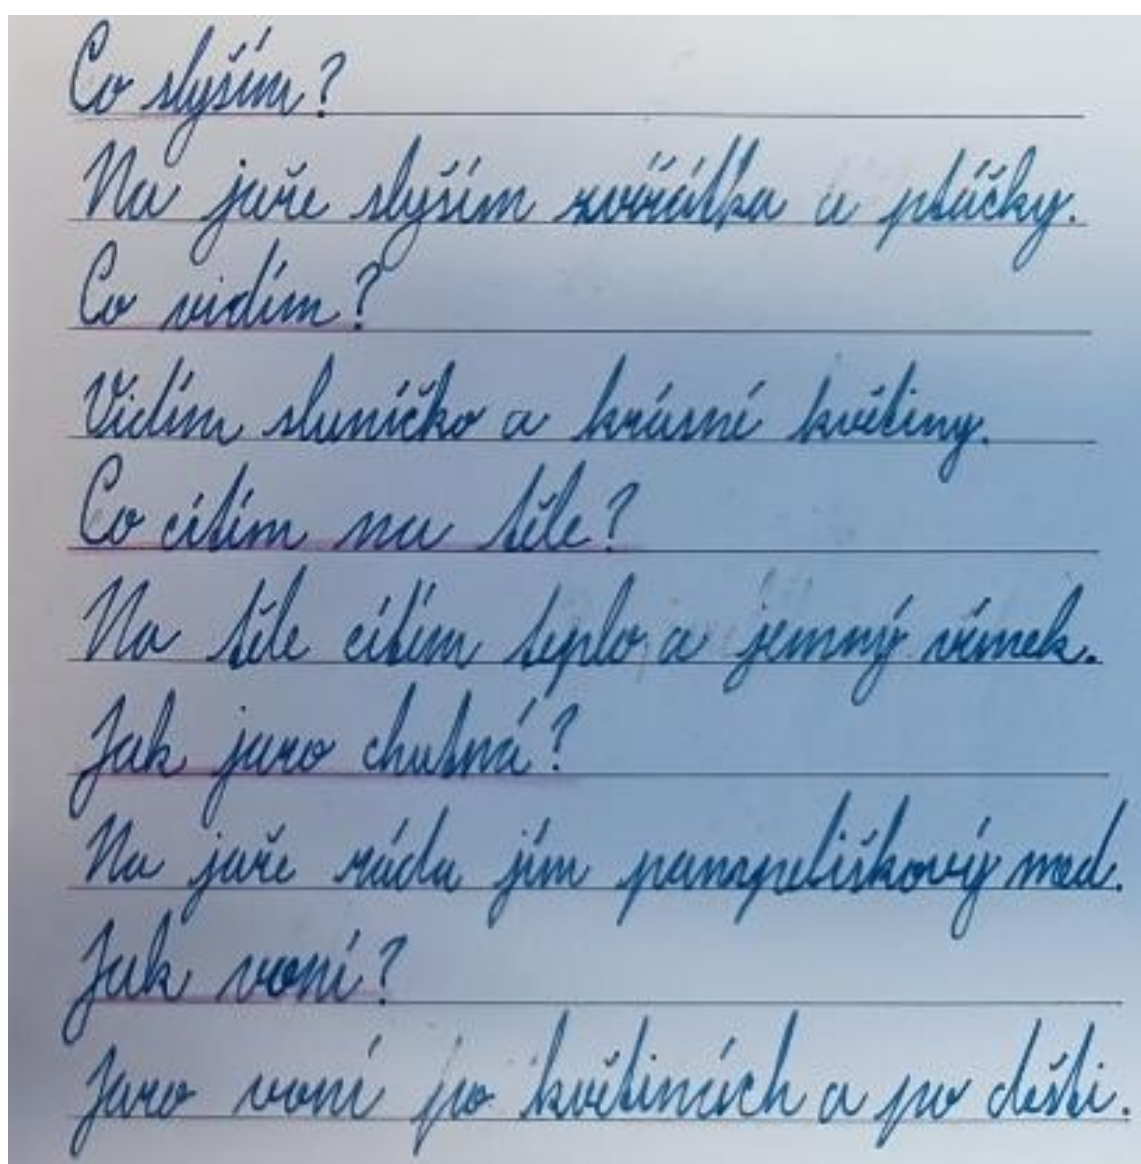 Co slyším?
Na jaře slyším zvířátka a ptáčky.
Co vidím?
Vidím sluníčko a krásné květiny.
Co cítím na těle?
Na těle cítím teplo a jemný vánek.
Jak jaro chutná?
Na jaře ráda jím pampeliškový med.
Jak voní?
Jaro voní po květinách a po dešti.